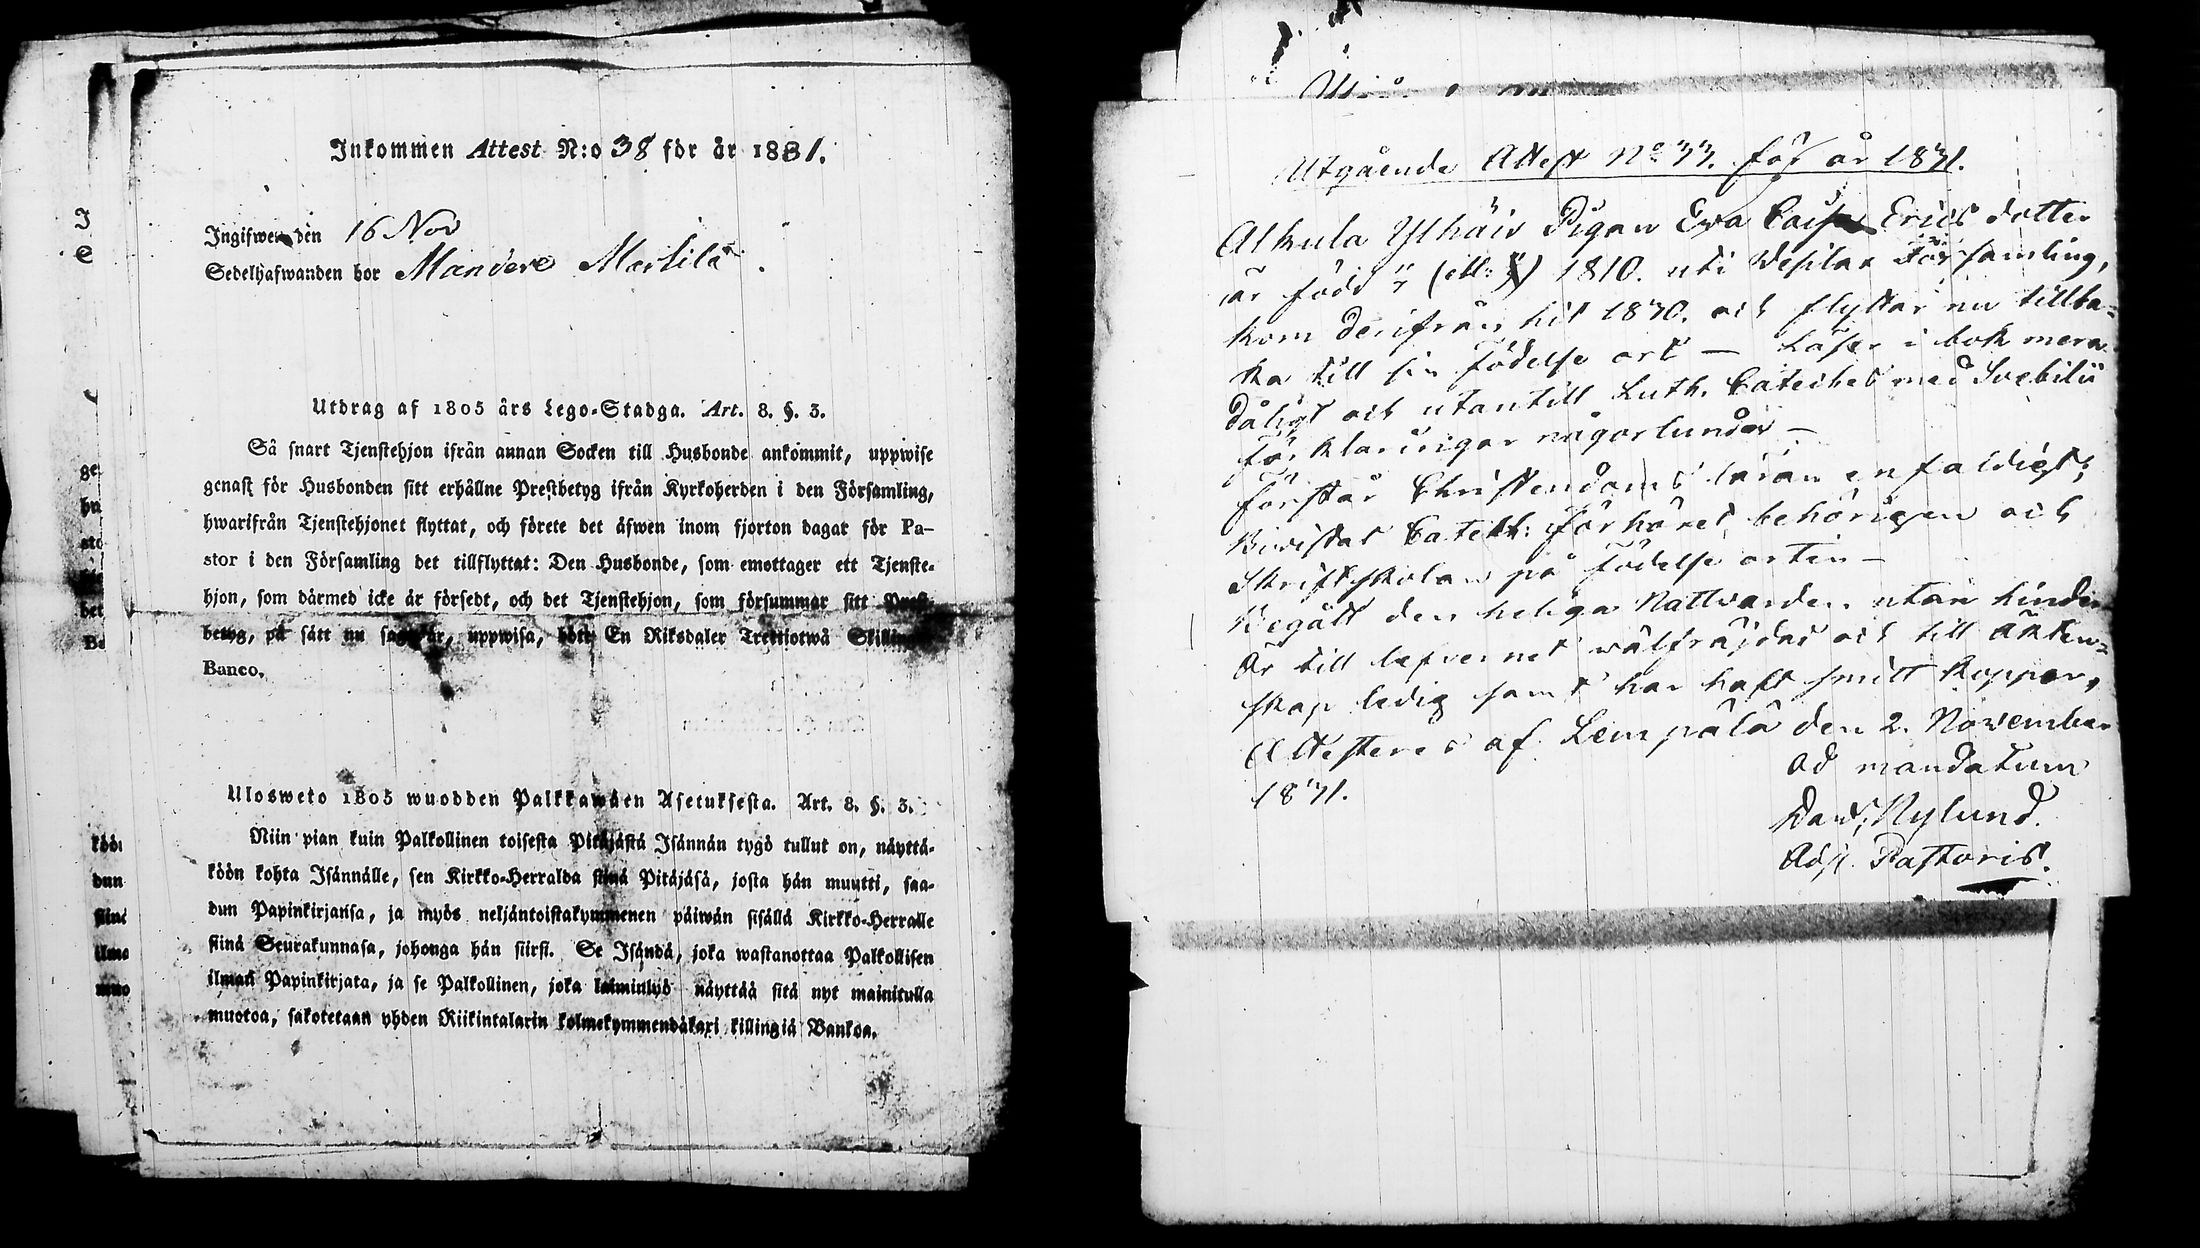 Inkommen Attest N:o 38 för år 1831.
Ingifwen den 16 Nov
Sedelhafwanden bor Mandere Marlila
Utdrag af 1805 års Lego-Stadga. Art. 8. §. 3.
Så snart Tjenstehjon ifrån annan Socken till Husbonde ankommit, uppwise
genast för Husbonden sitt erhållne Prestbetyg ifrån Kyrkoherden i den Församling,
hwarifrån Tjenstehjonet flyttat, och förete det äfwen inom fjorton dagar för Pa-
stor i den Församling det tillflyttat: Den Husbonde, som emottager ett Tjenste-
hjon, som därmed icke är försedt, och det Tjenstehjon, som försummar sitt Prest-
betyg, på sätt nu sagdt är, uppwisa, böte En Riksdaler Trettiotwå Skillingar
Banco.
Ulosweto 1805 wuodden Palkkawäen Asetuksesta. Art. 8. §. 3.
Niin pian kuin Palkollinen toisesta Pitäjästä Isännän tygö tullut on, näyttä-
köön kohta Isännälle, sen Kirkko-Herralda siinä Pitäjäsä, josta hän muutti, saa-
dun Papinkirjansa, ja myös neljäntoistakymmenen päiwän sisällä Kirkko-Herralle
siinä Seurakunnasa, johonga hän siirsi. Se Isändä, joka wastanottaa Palkollisen
ilman Papinkirjata, ja se Palkollinen, joka laiminlyö näyttää sitä nyt mainitulla
muotoa, sakotetaan yhden Riikintalarin kolmekymmendäkaxi killingiä Bankoa.
Utgående Attest No 33. för år 1831.
Alkula Ylhäis Pigan Eva Caisa Erics dotter
är född (ell: ) 1810. uti Wesilax Församling,
kom derifrån hit 1830. och flyttar nu tillba-
ka till sin födelse ort — Läser i bok mera
dåligt och utantill Luth. Cateches med Svebilii
förklaringar någorlunda —
Förstår Christendoms läran enfaldigt;
Bivistat Catech: förhöret behörigen och
Skriftskolan på födelse orten —
Begått den heliga Nattvarden utan hinder
Är till lefvernet wälfräjdad och till äkten-
skap ledig samt har haft smitt koppor,
Attesteras af Lempälä den 2. November
1831.
Ad mandatum
Dav; Nylund.
Adj. Pastoris.